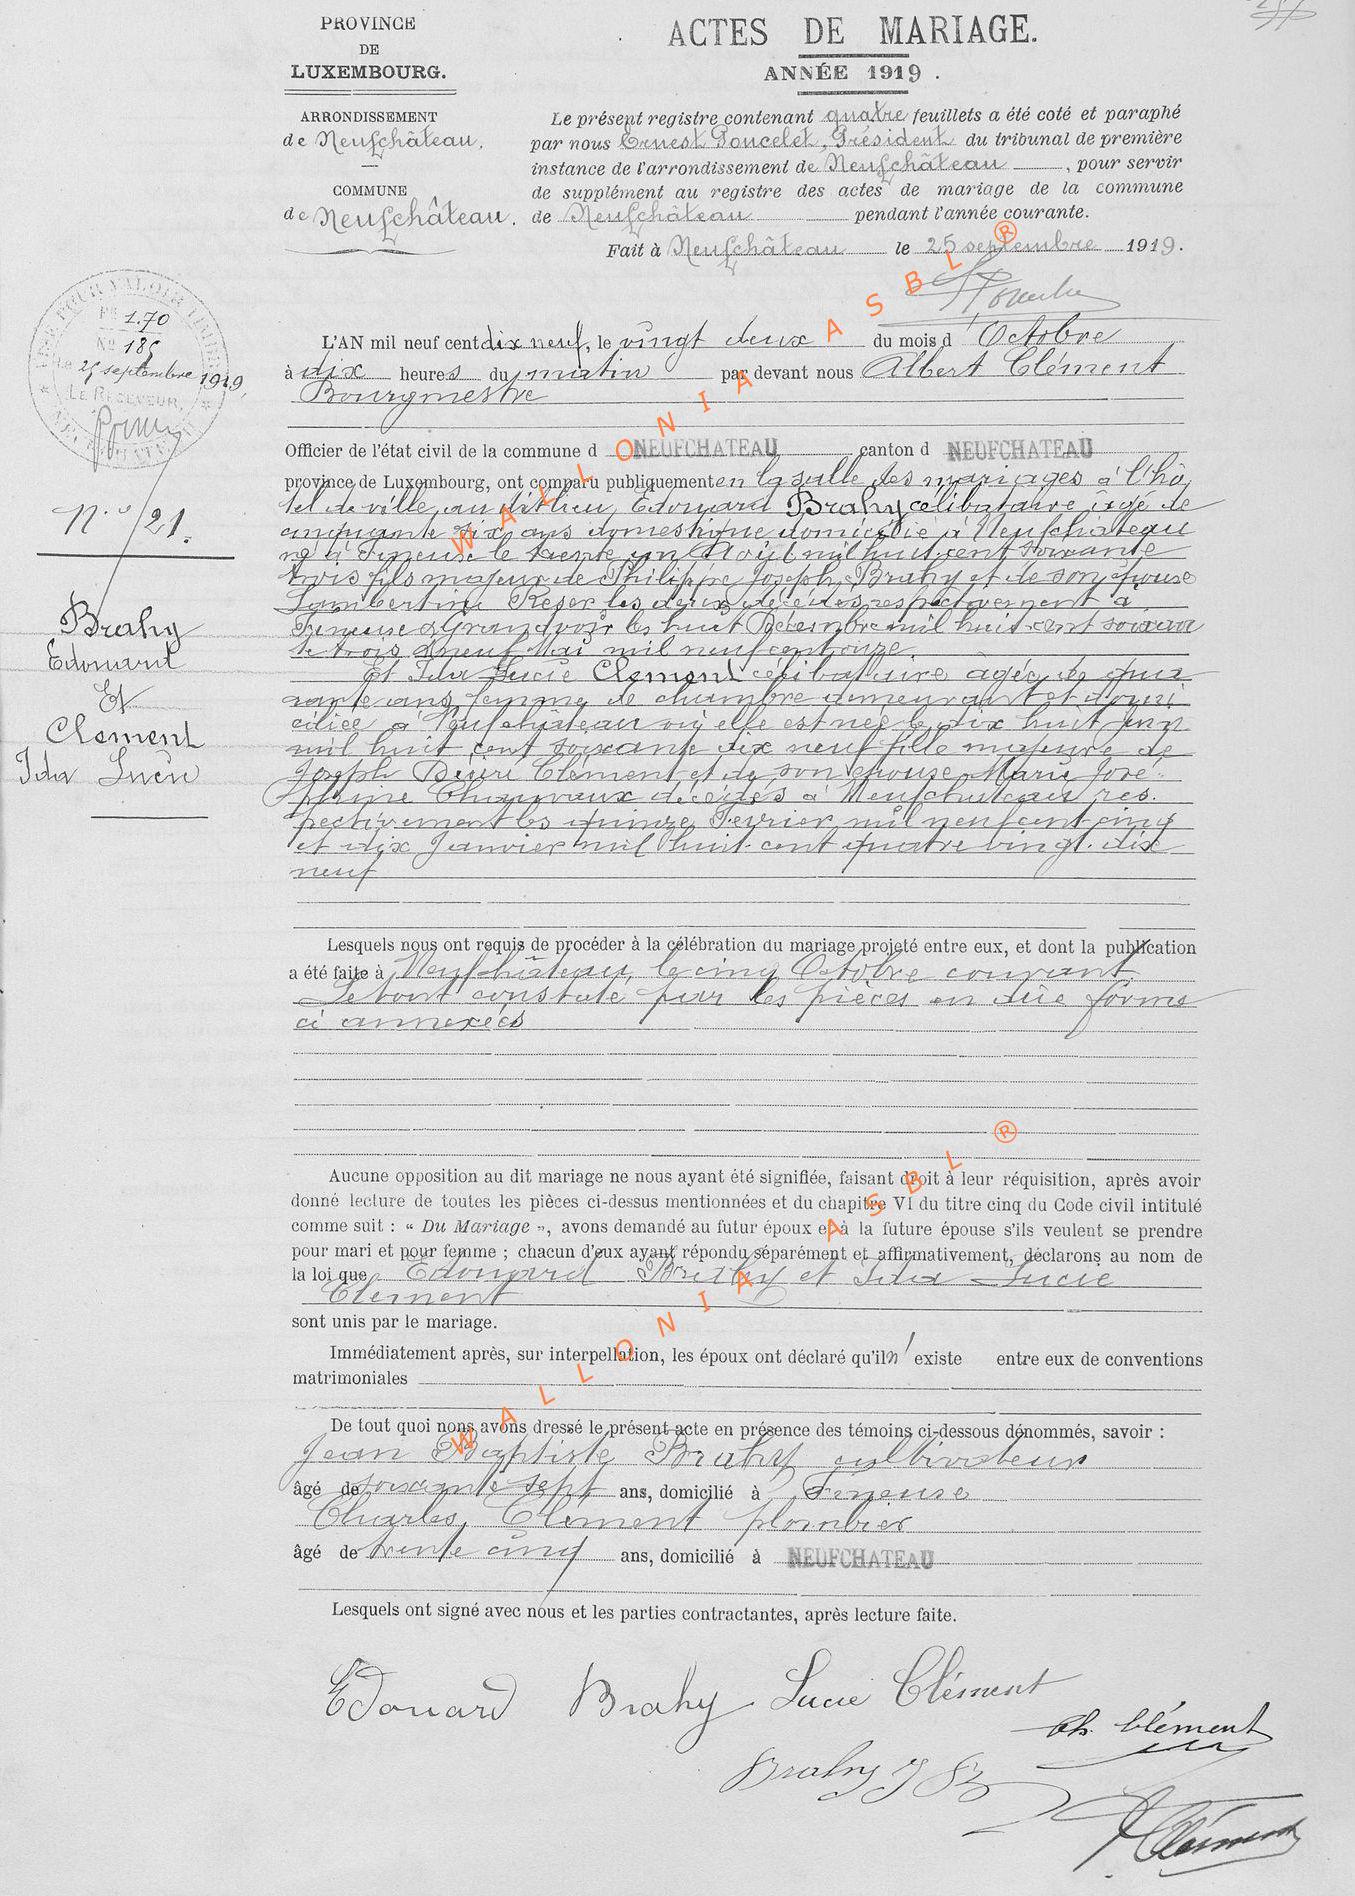 PROVINCE
DE
LUXEMBOURG.
ARRONDISSEMENT
de Neufchâteau.
COMMUNE
de Neufchâteau.
ACTES DE MARIAGE.
ANNÉE 1919.
Le présent registre contenant quatre feuillets a été coté et paraphé
par nous Ernest Poncelet, Président du tribunal de première
instance de l'arrondissement de Neufchâteau, pour servir
de supplément au registre des actes de mariage de la commune
de Neufchâteau pendant l'année courante.
Fait à Neufchâteau le 25 septembre 1919.
Fr 1.70
No 185
Le 25 septembre 1919,
LE RECEVEUR,
L'AN mil neuf cent dix neuf, le vingt deux du mois d'Octobre
à dix heures du matin par devant nous Albert Clément
Bourgmestre
Officier de l'état civil de la commune d NEUFCHATEAU canton d NEUFCHATEAU
province de Luxembourg, ont comparu publiquement en la salle des mariages à l'hô
tel de ville, au dit lieu, Edouard Brahy célibataire âgé de
cinquante six ans domestique domicilié à Neufchâteau
né à Tineuse le trente un Août mil huit cent soixante
trois fils majeur de Philippe Joseph Brahy et de son épouse
Lambertine Reser les deux décédés respectivement à
Tineuse & Grandvoir les huit Décembre mil huit cent soixan
te trois & neuf Mai mil neuf cent onze
Et Ida Lucie Clement célibataire âgée de qua
rante ans femme de chambre demeurant et domi
ciliée à Neufchâteau où elle est née le dix huit juin
mil huit cent soixante dix neuf fille majeure de
Joseph Désiré Clément et de son épouse Marie José
phine Chauvaux décédés à Neufchateau res
pectivement les quinze Février mil neuf cent cinq
et dix Janvier mil huit cent quatre vingt dix
neuf
No 21.
Brahy
Edouard
Et
Clement
Ida Lucie
Lesquels nous ont requis de procéder à la célébration du mariage projeté entre eux, et dont la publication
a été faite à Neufchâteau, le cinq Octobre courant
Le tout constaté par les pièces en due forme
ci annexées
Aucune opposition au dit mariage ne nous ayant été signifiée, faisant droit à leur réquisition, après avoir
donné lecture de toutes les pièces ci-dessus mentionnées et du chapitre VI du titre cinq du Code civil intitulé
comme suit : « Du Mariage », avons demandé au futur époux et à la future épouse s'ils veulent se prendre
pour mari et pour femme ; chacun d'eux ayant répondu séparément et affirmativement, déclarons au nom de
la loi que Edouard Brahy et Ida Lucie
Clement
sont unis par le mariage.
Immédiatement après, sur interpellation, les époux ont déclaré qu'il n'existe entre eux de conventions
matrimoniales
De tout quoi nons avons dressé le présent acte en présence des témoins ci-dessous dénommés, savoir :
Jean Baptiste Brahy cultivateur
âgé de soixante sept ans, domicilié à Tineuse
Charles Clément plombier
âgé de trente cinq ans, domicilié à NEUFCHATEAU
Lesquels ont signé avec nous et les parties contractantes, après lecture faite.
Edouard Brahy Lucie Clément
Ch. Clément
Brahy J B
Clément
WALLONIA ASBL ®
WALLONIA ASBL ®